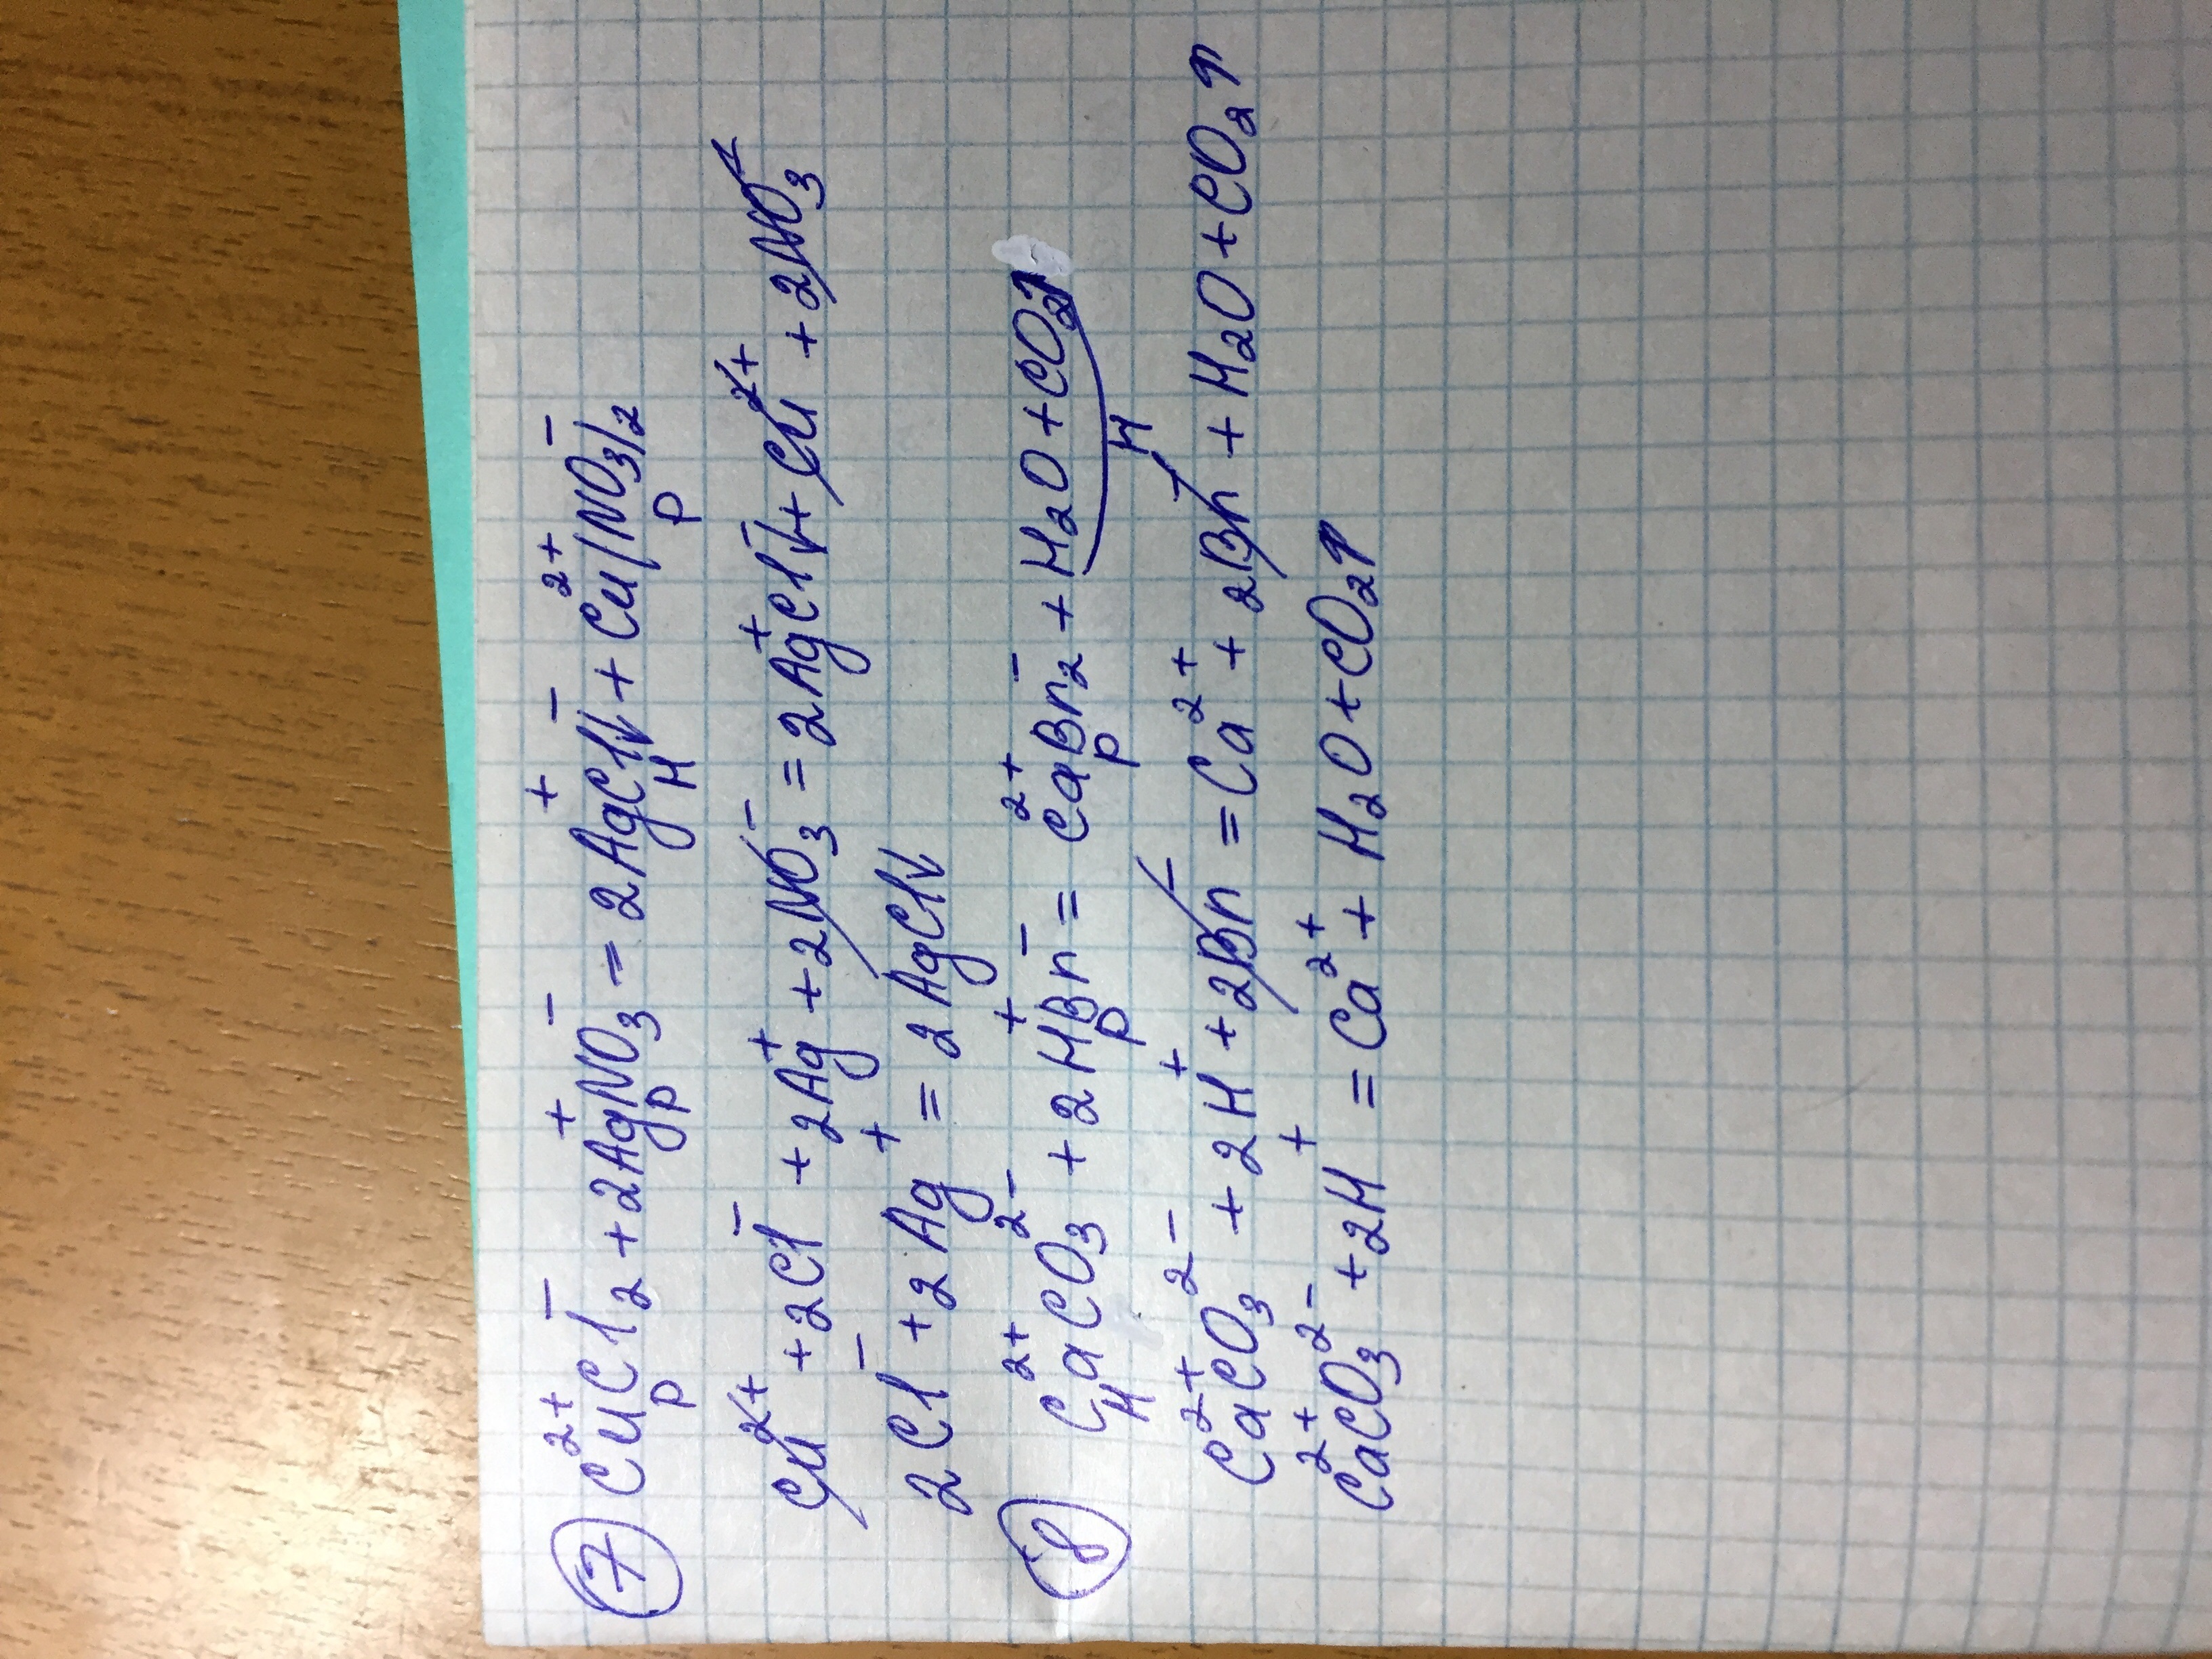 ⑦ Cu²⁺Cl₂⁻ + 2Ag⁺NO₃⁻ = 2Ag⁺Cl⁻↓ + Cu²⁺(NO₃)₂⁻
р р н р
Cu²⁺ + 2Cl⁻ + 2Ag⁺ + 2NO₃⁻ = 2Ag⁺Cl⁻↓ + Cu²⁺ + 2NO₃⁻
2Cl⁻ + 2Ag⁺ = 2AgCl↓
⑧ Ca²⁺CO₃²⁻ + 2H⁺Br⁻ = Ca²⁺Br₂⁻ + H₂O + CO₂↑
н р р н
Ca²⁺CO₃²⁻ + 2H⁺ + 2Br⁻ = Ca²⁺ + 2Br⁻ + H₂O + CO₂↑
Ca²⁺CO₃²⁻ + 2H⁺ = Ca²⁺ + H₂O + CO₂↑